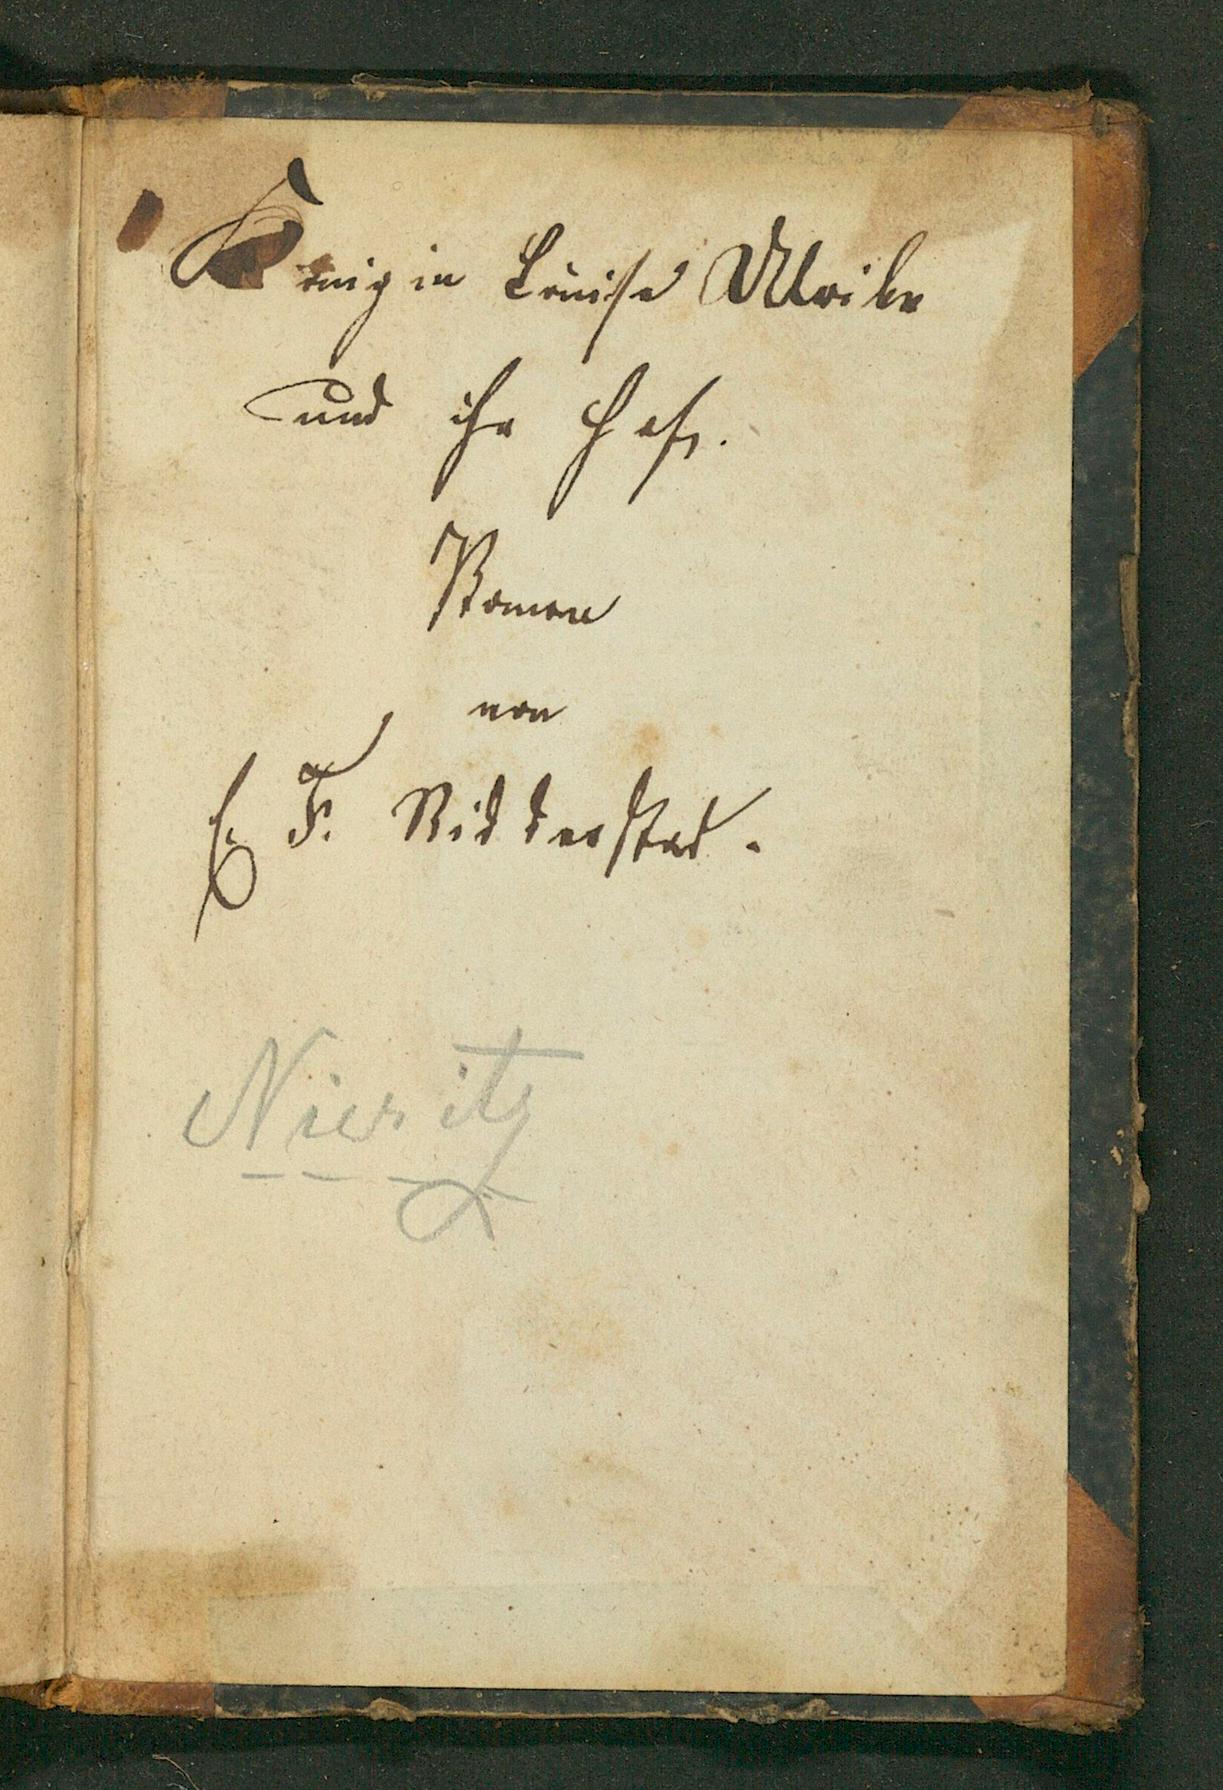 Königin Louise Ulrike
und ihr Hof.
Roman
von
C. F. Ridderstad.
Nieritz